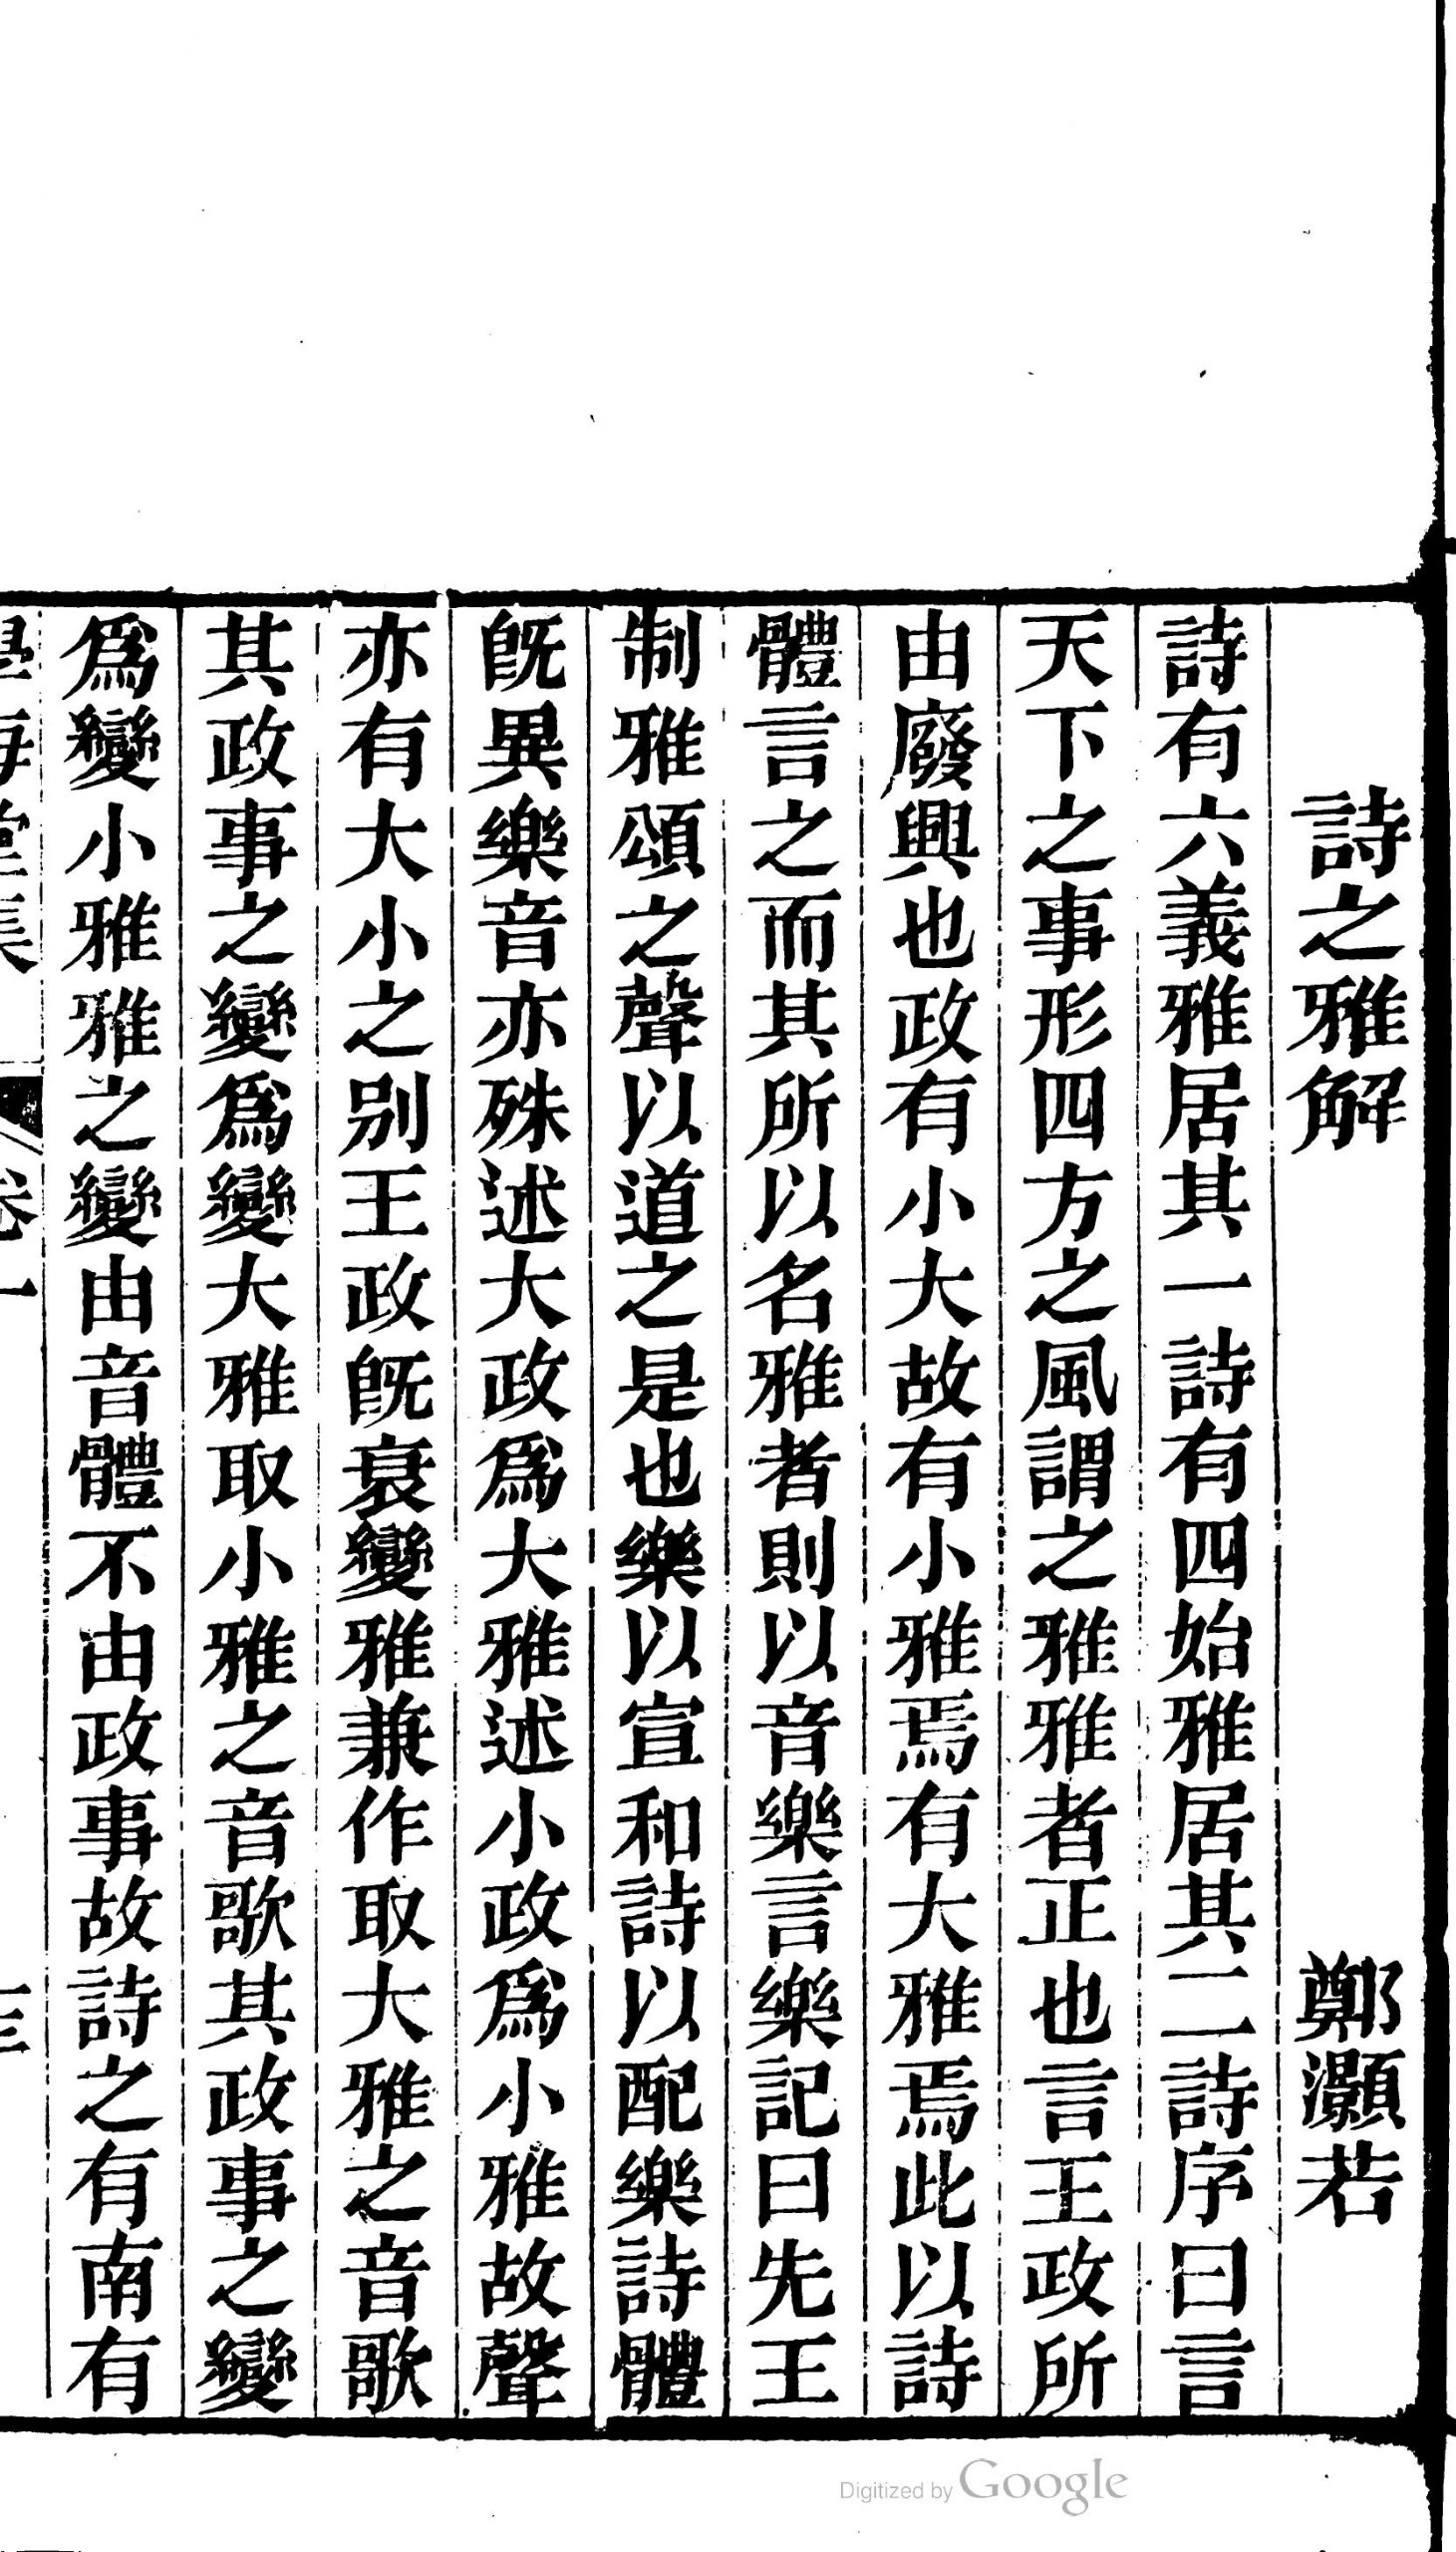 詩之雅解　鄭灝若
詩有六義雅居其一詩有四始雅居其二詩序曰言
天下之事形四方之風謂之雅雅者正也言王政所
由廢興也政有小大故有小雅焉有大雅焉此以詩
體言之而其所以名雅者則以音樂言樂記曰先王
制雅頌之聲以道之是也樂以宣和詩以配樂詩體
旣異樂音亦殊述大政爲大雅述小政爲小雅故聲
亦有大小之别王政旣衰變雅兼作取大雅之音歌
其政事之變爲變大雅取小雅之音歌其政事之變
爲變小雅雅之變由音體不由政事故詩之有南有
Digitized by Google